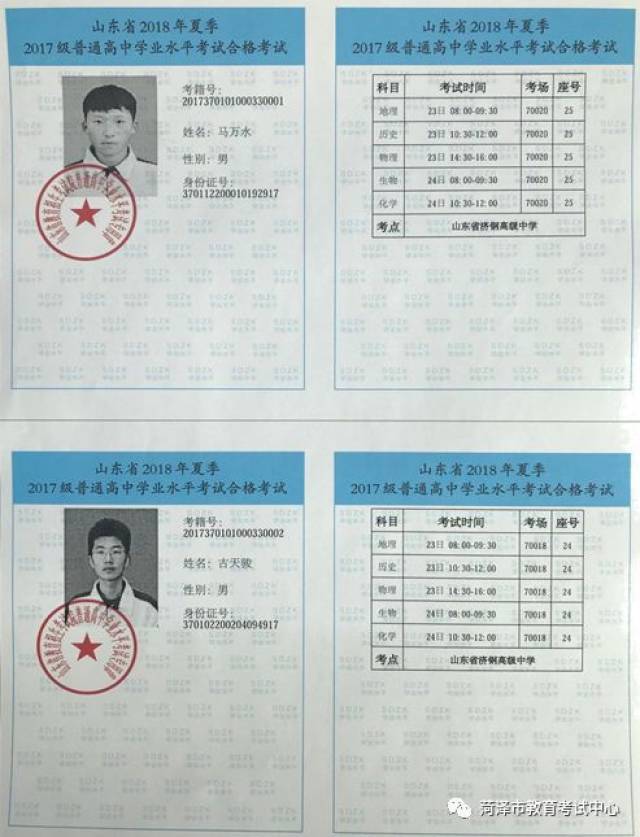 山东省2018年夏季
2017级普通高中学业水平考试合格考试
考籍号:
2017370101000330001
姓名: 马万水
性别: 男
身份证号:
370112200010192917
山东省2018年夏季
2017级普通高中学业水平考试合格考试
科目 考试时间 考场 座号
地理 23日 08:00-09:30 70020 25
历史 23日 10:30-12:00 70020 25
物理 23日 14:30-16:00 70020 25
生物 24日 08:00-09:30 70020 25
化学 24日 10:30-12:00 70020 25
考点 山东省济钢高级中学
山东省2018年夏季
2017级普通高中学业水平考试合格考试
考籍号:
2017370101000330002
姓名: 古天骏
性别: 男
身份证号:
370102200204094917
山东省2018年夏季
2017级普通高中学业水平考试合格考试
科目 考试时间 考场 座号
地理 23日 08:00-09:30 70018 24
历史 23日 10:30-12:00 70018 24
物理 23日 14:30-16:00 70018 24
生物 24日 08:00-09:30 70018 24
化学 24日 10:30-12:00 70018 24
考点 山东省济钢高级中学
菏泽市教育考试中心